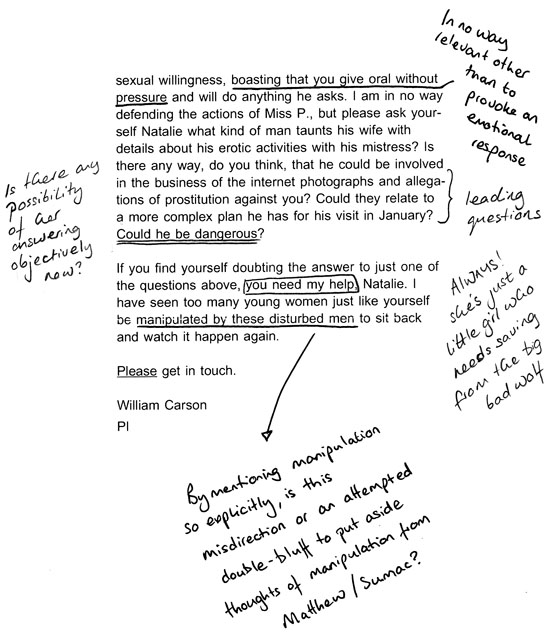 In no way
relevant other
than to
provoke an
emotional
response
sexual willingness, boasting that you give oral without
pressure and will do anything he asks. I am in no way
defending the actions of Miss P., but please ask your-
self Natalie what kind of man taunts his wife with
details about his erotic activities with his mistress? Is
there any way, do you think, that he could be involved
in the business of the internet photographs and allega-
tions of prostitution against you? Could they relate to
a more complex plan he has for his visit in January?
Could he be dangerous?
Is there any
possibility
of her
answering
objectively
now?
leading
questions
If you find yourself doubting the answer to just one of
the questions above, you need my help, Natalie. I
have seen too many young women just like yourself
be manipulated by these disturbed men to sit back
and watch it happen again.
Always!
she's just a
little girl who
needs saving
from the big
bad wolf
Please get in touch.
William Carson
PI
By mentioning manipulation
so explicitly, is this
misdirection or an attempted
double-bluff to put aside
thoughts of manipulation from
Matthew/Sumac?